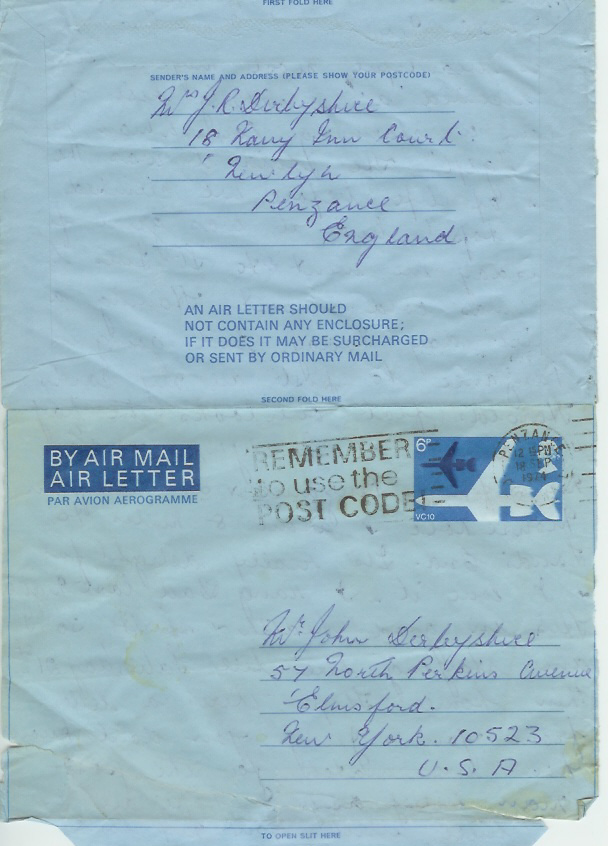 FIRST FOLD HERE
SENDER'S NAME AND ADDRESS (PLEASE SHOW YOUR POSTCODE)
Mrs J. R. Derbyshire
18 Navy Inn Court
Newlyn
Penzance
England.
AN AIR LETTER SHOULD
NOT CONTAIN ANY ENCLOSURE;
IF IT DOES IT MAY BE SURCHARGED
OR SENT BY ORDINARY MAIL
SECOND FOLD HERE
BY AIR MAIL
AIR LETTER
PAR AVION AEROGRAMME
REMEMBER
to use the
POST CODE
6P
VC10
PENZAN
12
18 SEP
1974
Mr John Derbyshire
57 North Perkins Avenue
Elmsford.
New York. 10523
U. S. A
TO OPEN SLIT HERE